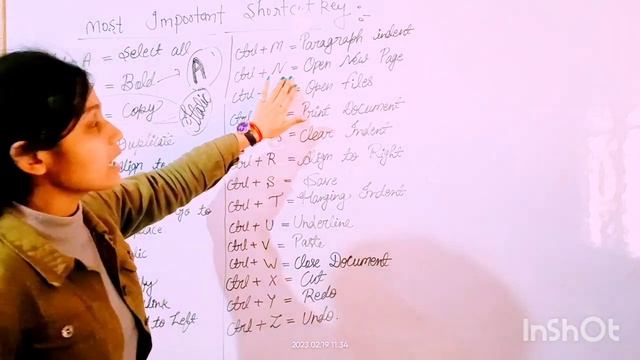 Most Important Shortcut Key :-
A = Select all
= Bold → A
= Copy Italic
Duplicate
Align to
go to
to Left
Ctrl + M = Paragraph indent
Ctrl + N = Open New Page
Ctrl = Open files
Ctrl = Print Document
= Clear Indent
Ctrl + R = Align to Right
Ctrl + S = Save
Ctrl + T = Hanging Indent
Ctrl + U = Underline
Ctrl + V = Paste
Ctrl + W = Close Document
Ctrl + X = Cut
Ctrl + Y = Redo
Ctrl + Z = Undo.
2023.02.19 11:34
InShOt